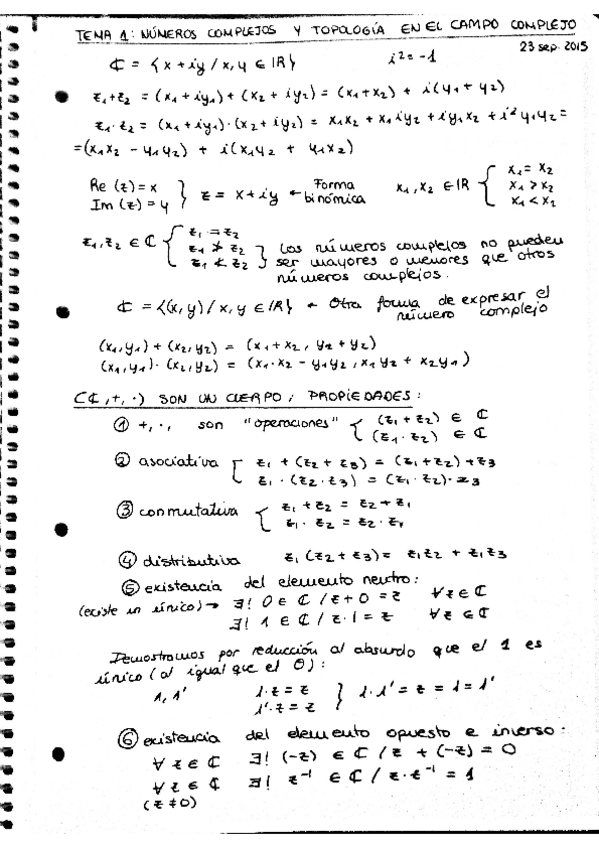 TEMA 1: NÚMEROS COMPLEJOS Y TOPOLOGÍA EN EL CAMPO COMPLEJO
23 sep. 2015
ℂ = {x + iy / x, y ∈ ℝ}   i² = -1
z₁+z₂ = (x₁ + iy₁) + (x₂ + iy₂) = (x₁+x₂) + i(y₁ + y₂)
z₁·z₂ = (x₁ + iy₁)·(x₂ + iy₂) = x₁x₂ + x₁iy₂ + iy₁x₂ + i²y₁y₂ =
=(x₁x₂ - y₁y₂) + i(x₁y₂ + y₁x₂)
Re (z) = x
Im (z) = y } z = x + iy ← Forma binómica   x₁, x₂ ∈ ℝ { x₁ = x₂
x₁ > x₂
x₁ < x₂
z₁, z₂ ∈ ℂ { z₁ = z₂
z₁ ≯ z₂
z₁ ≮ z₂ } Los números complejos no pueden
ser mayores o menores que otros
números complejos.
ℂ = {(x, y) / x, y ∈ ℝ} ← Otra forma de expresar el
número complejo
(x₁, y₁) + (x₂, y₂) = (x₁ + x₂, y₁ + y₂)
(x₁, y₁) · (x₂, y₂) = (x₁·x₂ - y₁y₂, x₁y₂ + x₂y₁)
(ℂ, +, ·) SON UN CUERPO; PROPIEDADES:
① +, ·, son "operaciones" { (z₁ + z₂) ∈ ℂ
(z₁ · z₂) ∈ ℂ
② asociativa [ z₁ + (z₂ + z₃) = (z₁+z₂) + z₃
z₁ · (z₂ · z₃) = (z₁·z₂)·z₃
③ conmutativa { z₁ + z₂ = z₂ + z₁
z₁ · z₂ = z₂ · z₁
④ distributiva z₁(z₂ + z₃) = z₁z₂ + z₁z₃
⑤ existencia del elemento neutro:
(existe un único) → ∃! 0 ∈ ℂ / z + 0 = z ∀z ∈ ℂ
∃! 1 ∈ ℂ / z·1 = z ∀z ∈ ℂ
Demostramos por reducción al absurdo que el 1 es
único (al igual que el 0):
1, 1'   1·z = z
1'·z = z } 1·1' = z = 1 = 1'
⑥ existencia del elemento opuesto e inverso:
∀ z ∈ ℂ ∃! (-z) ∈ ℂ / z + (-z) = 0
∀ z ∈ ℂ ∃! z⁻¹ ∈ ℂ / z·z⁻¹ = 1
(z ≠ 0)